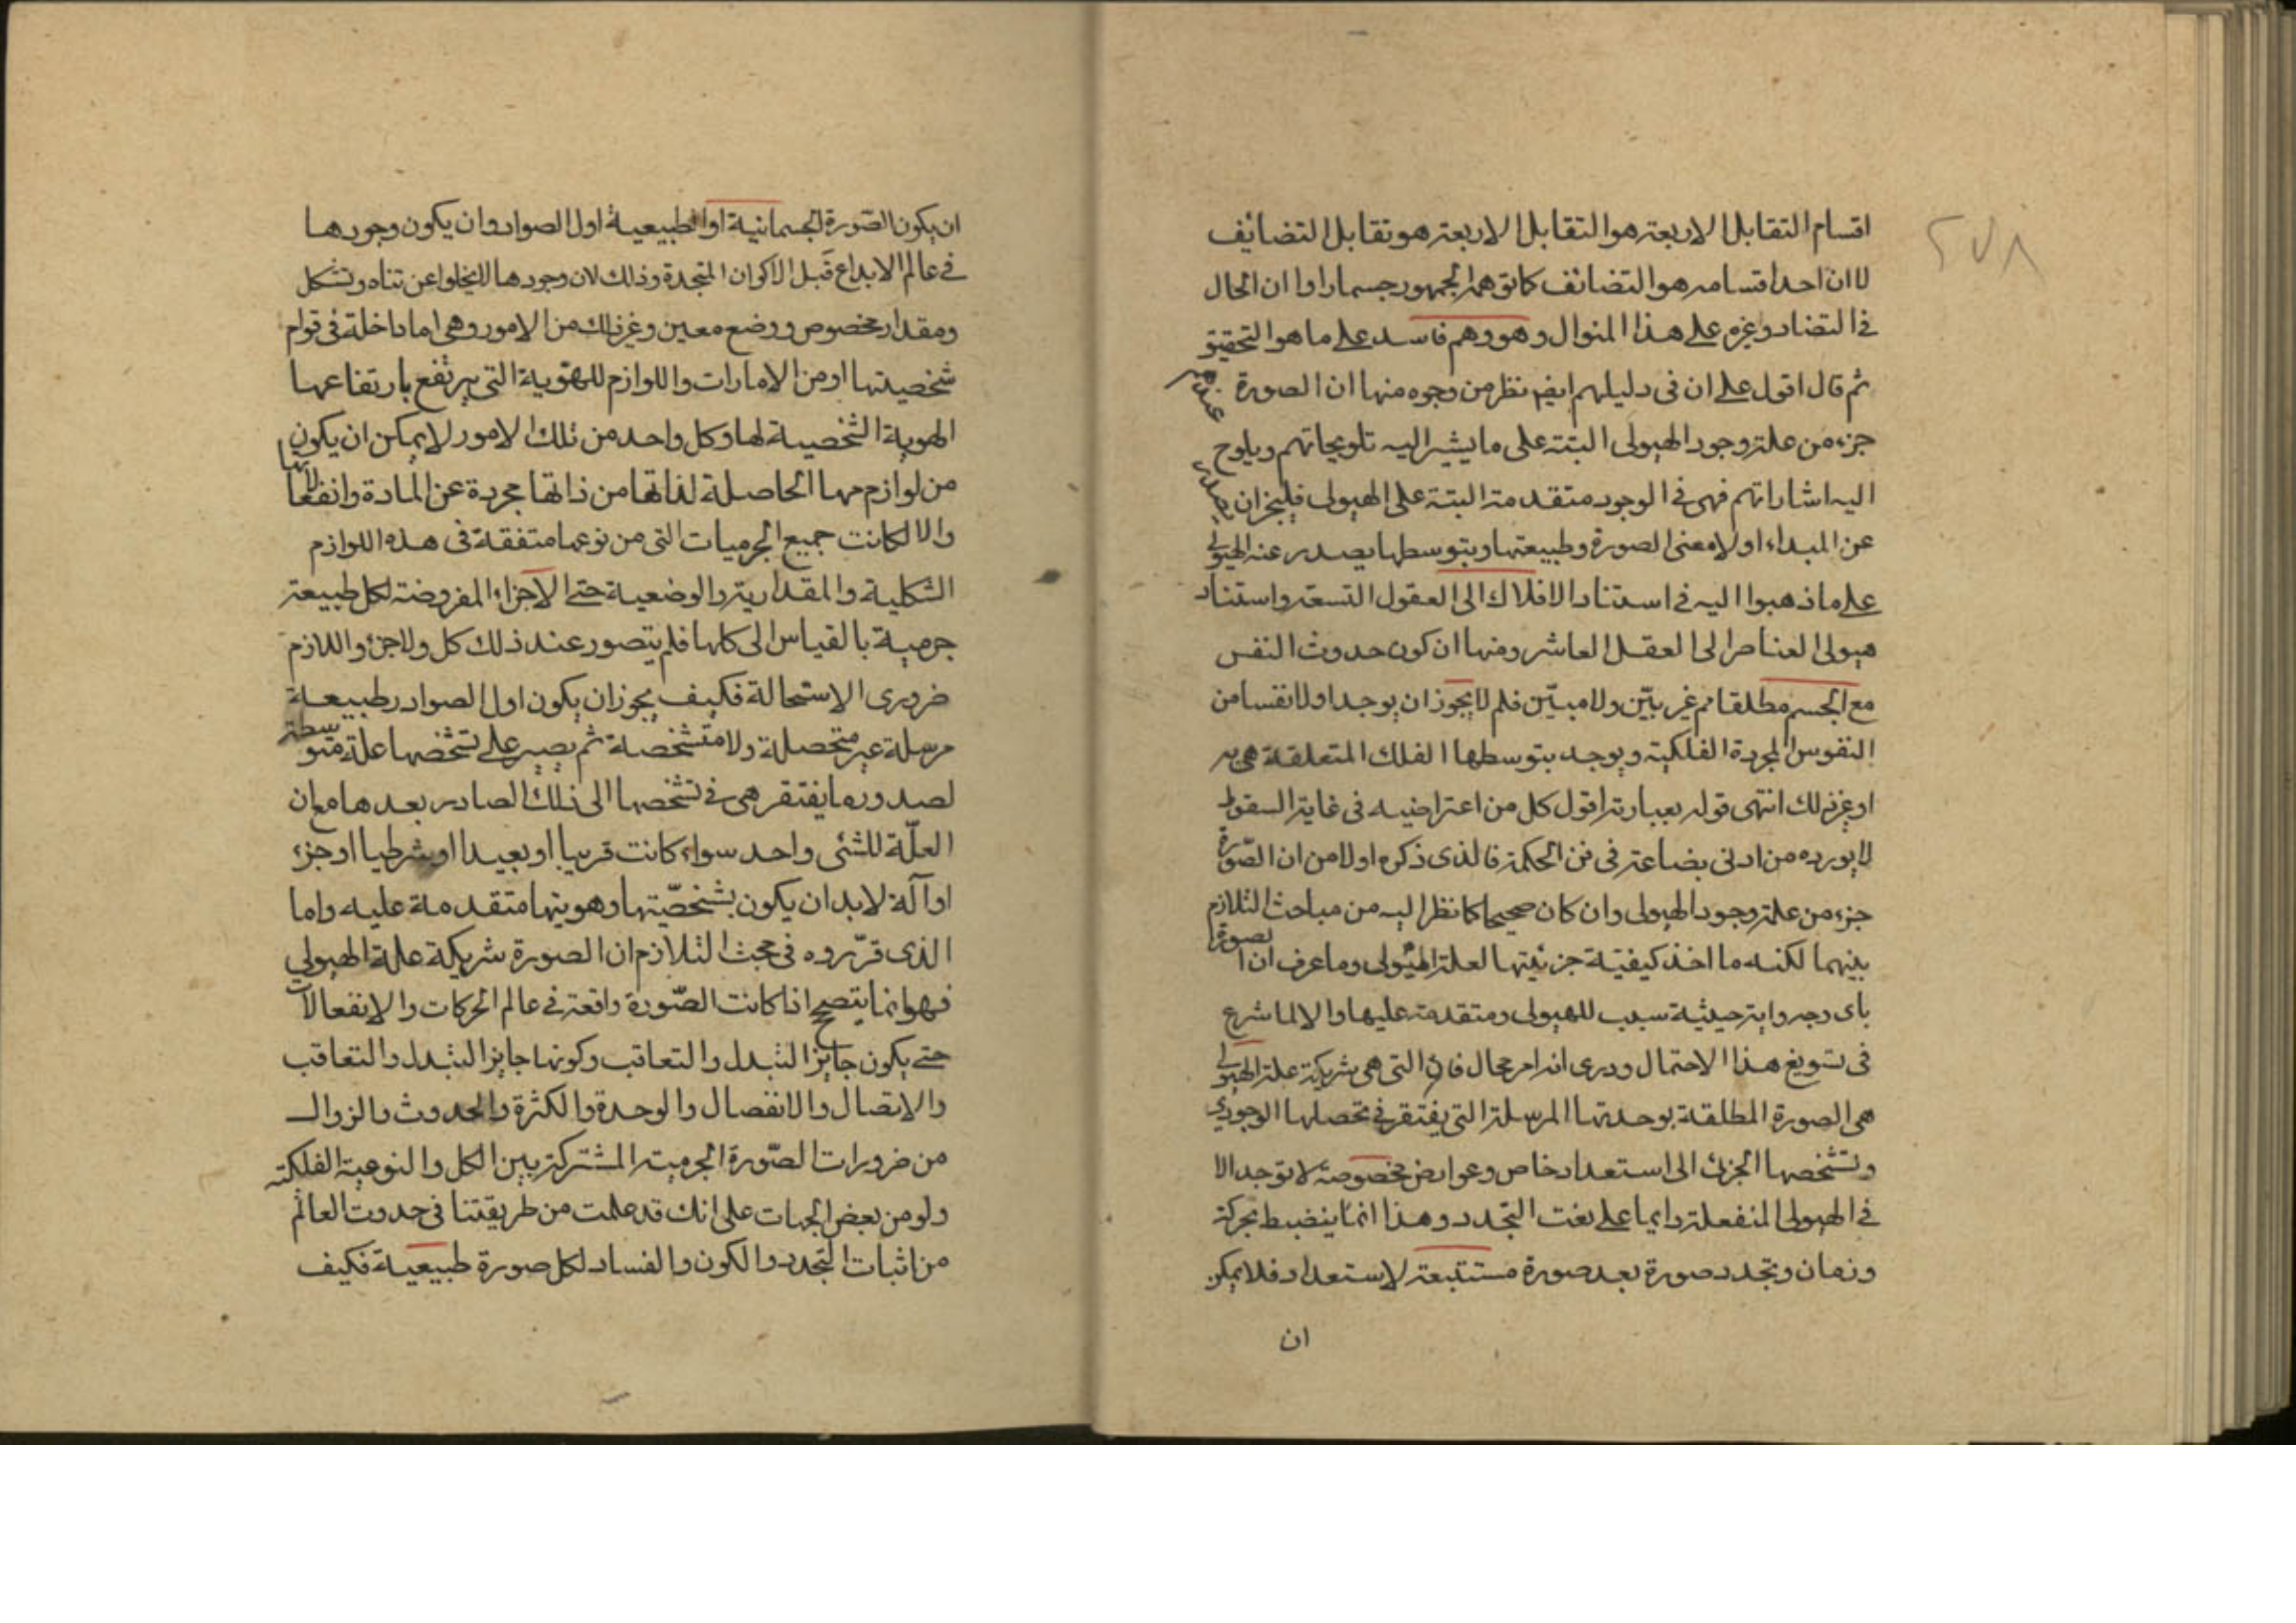 ٢٧٨
اقسام التقابل الاربعة هو التقابل الاربعة هو تقابل التضائف
لا ان احد اقسامه هو التضائف كما توهمه الجمهور جسما راوا ان الحال
في التضاد وغيره على هذا المنوال وهو وهم فاسد على ما هو التحقيق عندهم
ثم قال اقول على ان في دليلهم ايضا نظر من وجوه منها ان الصورة
جزء من علة وجود الهيولى البتة على ما يشير اليه تلويحاتهم ويلوح
اليه اشاراتهم فهي في الوجود متقدمة البتة على الهيولى فليجز ان يصدر
عن المبداء اولا معنى الصورة وطبيعتها وبتوسطها يصدر عنه الهيولى
على ما ذهبوا اليه في استناد الافلاك الى العقول التسعة واستناد
هيولى العناصر الى العقل العاشر ومنها ان كون حدوث النفس
مع الجسم مطلقا مم غير بيّن ولا مبيّن فلم لا يجوز ان يوجد اولا نفسا من
النفوس المجردة الفلكية ويوجد بتوسطها الفلك المتعلقة هي به
او غير ذلك انتهى قوله بعبارته اقول كل من اعتراضيه في غاية السقوط
لا يورده من ادنى بضاعة في فن الحكمة فالذي ذكره اولا من ان الصّورة
جزء من علة وجود الهيولى وان كان صحيحا كما نظر اليه من مباحث التلازم
بينهما لكنه ما اخذ كيفيّة جزئيتها لعلة الهيولى وما عرف ان الصورة
باى وجه واية حيثية سبب للهيولى ومتقدمة عليها والا لما شرع
في تسويغ هذا الاحتمال ودرى انه امر محال فان التي هي شريكة علة الهيولى
هي الصورة المطلقة بوحدتها المرسلة التي يفتقر في تحصلها الوجودي
وتشخصها الجزئى الى استعداد خاص وعوارض مخصوصة لا توجد الا
في الهيولى المنفعلة دايما على نعت التجدد وهذا انما ينضبط بحركة
وزمان وتجدد صورة بعد صورة مستتبعة لاستعداد فلا يمكن
ان
ان يكون الصّورة الجسمانية او الطبيعية اول الصوادر وان يكون وجودها
في عالم الابداع قبل الاكوان المتجددة وذلك لان وجودها لا يخلوا عن تناه وتشكل
ومقدار مخصوص ووضع معين وغير ذلك من الامور وهي اما داخلة في قوام
شخصيتها او من الامارات واللوازم للهويّة التي يرتفع بارتفاعها
الهوية الشخصية لها وكل واحد من تلك الامور لا يمكن ان يكون
من لوازم مهيا الحاصلة لذاتها من ذاتها مجردة عن المادة وانفعالاتها
والا لكانت جميع الجرميات التي من نوعها متفقة في هذه اللوازم
الشكلية والمقدارية والوضعية حتى الاجزاء المفروضة لكل طبيعة
جرمية بالقياس الى كلها فلم يتصور عند ذلك كل ولا جزء واللازم
ضروري الاستحالة فكيف يجوز ان يكون اول الصوادر طبيعة
مرسلة غير متحصلة ولا متشخصة ثم يصير على تشخصها علة متوسطة
لصدور ما يفتقر هي في تشخصها الى ذلك الصادر بعدها مع ان
العلّة للشئ واحد سواء كانت قريبا او بعيدا او شرطيا او جزء
او آلة لابد ان يكون بشخصّيتها وهويتها متقدمة عليه واما
الذي قرّروه في مبحث التلازم ان الصورة شريكة علة الهيولى
فهو انما يتصحح اذا كانت الصّورة واقعة في عالم الحركات والانفعالات
حتى يكون جايز التبدل والتعاقب وكونها جايز التبدل والتعاقب
والاتصال والانفصال والوحدة والكثرة والحدوث والزوال
من ضرورات الصّورة الجرمية المشتركة بين الكل والنوعية الفلكية
ولو من بعض الجهات على انك قد علمت من طريقتنا في حدوث العالم
من اثبات التجدد والكون والفساد لكل صورة طبيعية فكيف